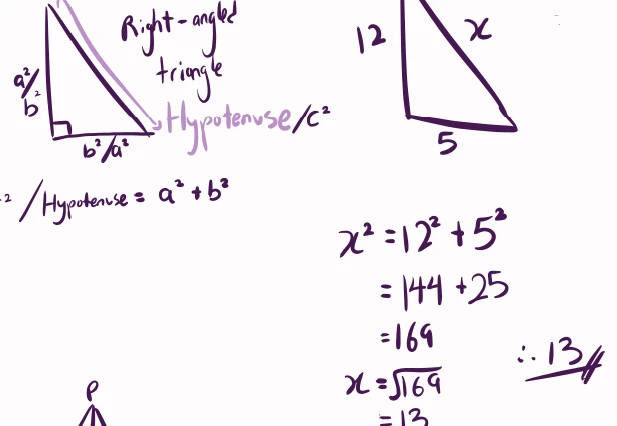 Right-angled
triangle
a²/
b²
Hypotenuse/c²
b²/a²
²/Hypotenuse = a² + b²
P
12
x
5
x² = 12² + 5²
= 144 + 25
= 169
x = √169
= 13
∴ 13